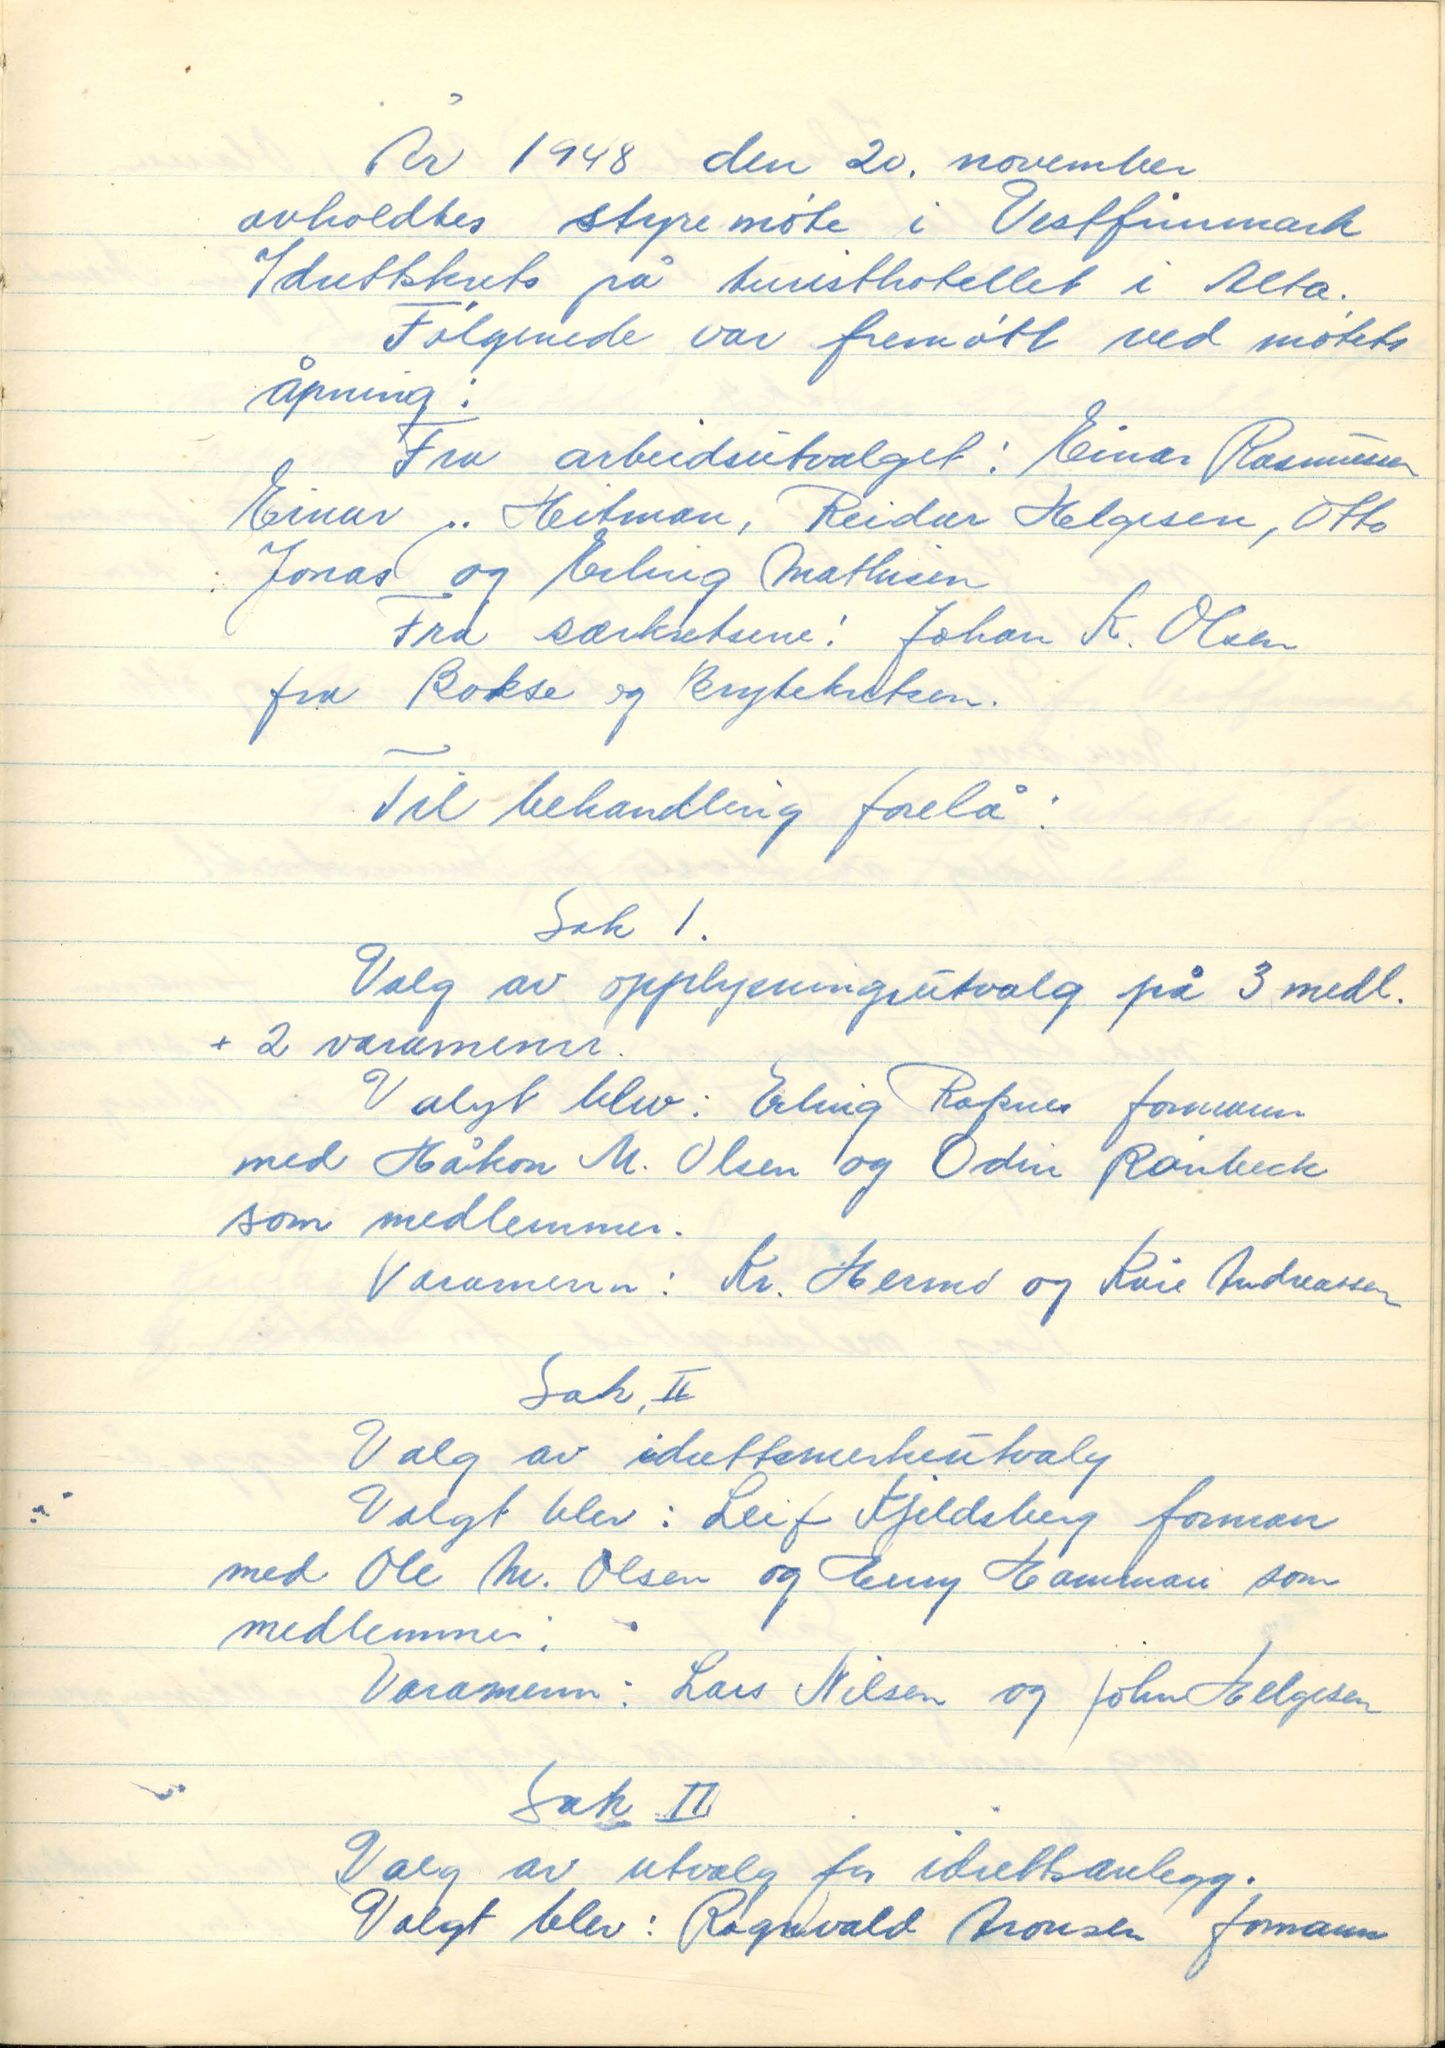 År 1948 den 20. november
avholdtes styremöte i Vestfinnmark
Idrettskrets på turisthotellet i Alta.
Følgende var fremött ved mötets
åpning:
Fra arbeidsutvalget: Einar Rasmussen
Einar .. Heitman, Reidar Helgesen, Otto
Jonas og Erling Mathisen
Fra særkretsene: Johan K. Olsen
fra Bokse og Brytekretsen.
Til behandling forelå:
Sak 1.
Valg av opplysningsutvalg på 3 medl.
+ 2 varamenn.
Valgt blev: Erling Rapnes formann
med Håkon M. Olsen og Odin Rönbeck
som medlemmer.
Varamenn: Kr. Hermo og Kåre Andreassen
Sak, II
Valg av idrettsmerkeutvalg
Valgt blev: Leif Kjeldsberg forman
med Ole M. Olsen og Hammari som
medlemmer.
Varamenn: Lars Nilsen og John Helgesen
Sak II
Valg av utvalg for idrettsanlegg.
Valgt blev: Ragnvald Aronsen formann